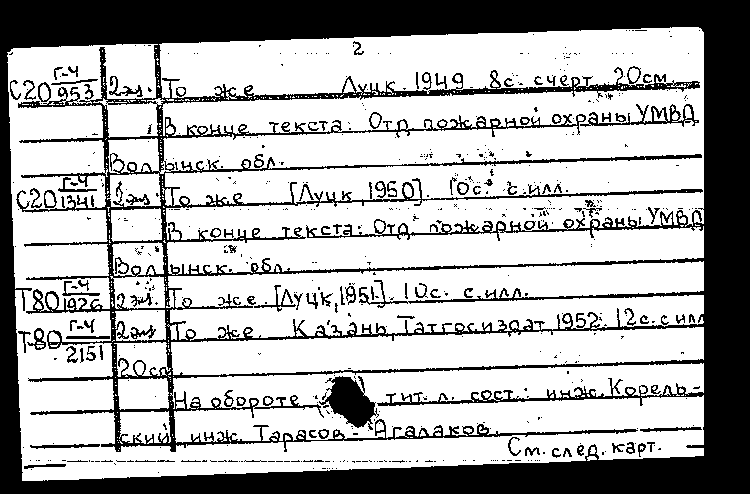 2
С20 Г-4/953 2экз. То же Луцк. 1949 8с. с черт. 20см
В конце текста: Отд. пожарной охраны УМВД
Волынск. обл.
С20 Г-4/1341 2экз. То же [Луцк, 1950]. 10с. с илл.
В конце текста: Отд. пожарной охраны УМВД
Волынск. обл.
Т80 Г-4/1926 2экз. То же [Луцк, 1951]. 10с. с.илл.
Т-80 Г-4/2151 2экз То же. Казань, Татгосиздат, 1952. 12с. с илл
20см.
На обороте тит. л. сост.: инж. Корель-
ский, инж. Тарасов - Агалаков.
См. след. карт.